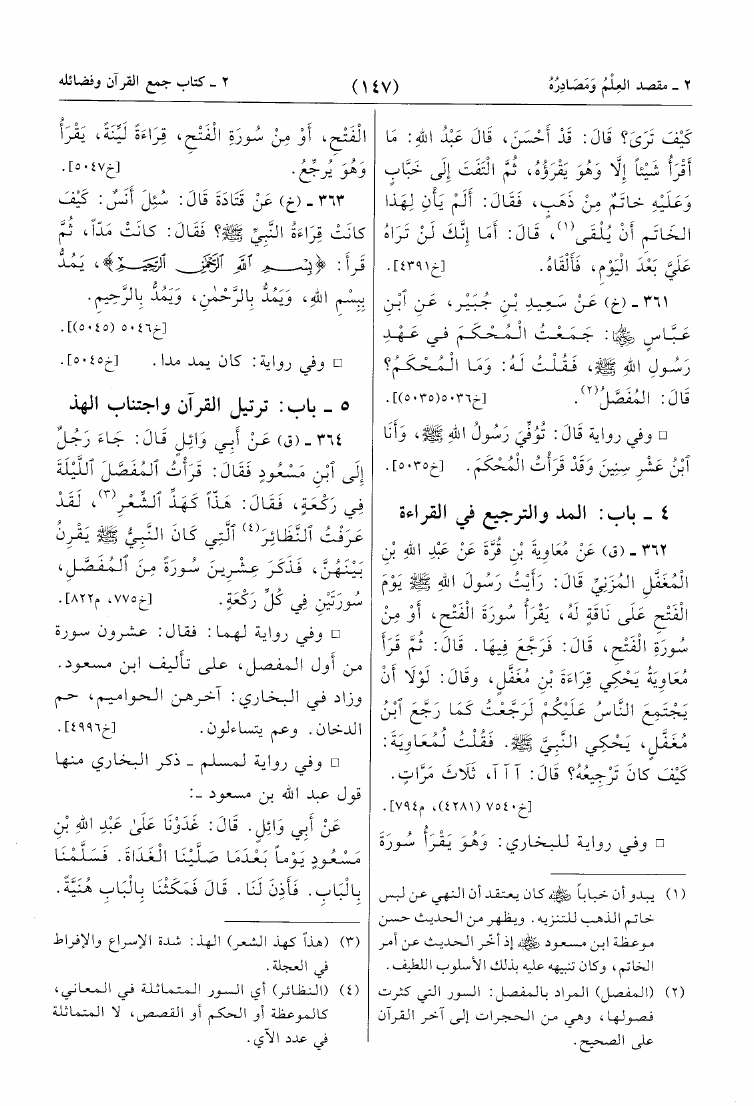 ٢ ـ مقصد العِلْمُ وَمَصَادِرُهُ
(١٤٧)
٢ ـ كتاب جمع القرآن وفضائله
كَيْفَ تَرَىٰ؟ قَالَ: قَدْ أَحْسَنَ، قَالَ عَبْدُ اللهِ: مَا
أَقْرَأُ شَيْئاً إِلَّا وَهُوَ يَقْرَؤُهُ، ثُمَّ الْتَفَتَ إِلَى خَبَّابٍ
وَعَلَيْهِ خاتَمٌ مِنْ ذَهَبٍ، فَقَالَ: أَلَمْ يَأْنِ لِهٰذا
الخَاتَمِ أَنْ يُلْقَى(١)، قَالَ: أَمَا إِنَّكَ لَنْ تَرَاهُ
عَلَيَّ بَعْدَ الْيَوْمِ، فَأَلْقَاهُ. [خ٤٣٩١].
٣٦١ ـ (خ) عَنْ سَعِيدِ بْنِ جُبَيْرٍ، عَنِ ٱبْنِ
عَبَّاسٍ ﷺ: جَمَعْتُ الْمُحْكَمَ في عَهْدِ
رَسُولِ اللهِ ﷺ، فَقُلْتُ لَهُ: وَمَا الْمُحْكَمُ؟
قَالَ: المُفَصَّلُ(٢). [خ٥٠٣٦ (٥٠٣٥)].
□ وفي رواية قَالَ: تُوُفِّيَ رَسُولُ اللهِ ﷺ، وَأَنَا
ابْنُ عَشْرِ سِنِينَ وَقَدْ قَرَأْتُ الْمُحْكَمَ. [خ٥٠٣٥].
٤ ـ باب: المد والترجيع في القراءة
٣٦٢ ـ (ق) عَنْ مُعَاوِيَةَ بْنِ قُرَّةَ عَنْ عَبْدِ اللهِ بْنِ
الْمُغَفَّلِ المُزَنِيِّ قَالَ: رَأَيْتُ رَسُولَ اللهِ ﷺ يَوْمَ
الْفَتْحِ عَلَى نَاقَةٍ لَهُ، يَقْرَأُ سُورَةَ الْفَتْحِ، أَوْ مِنْ
سُورَةِ الْفَتْحِ، قَالَ: فَرَجَّعَ فِيهَا. قَالَ: ثُمَّ قَرَأَ
مُعَاوِيَةُ يَحْكِي قِرَاءَةَ بْنِ مُغَفَّلٍ، وقَالَ: لَوْلَا أَنْ
يَجْتَمِعَ النَّاسُ عَلَيْكُمْ لَرَجَّعْتُ كَمَا رَجَّعَ ٱبْنُ
مُغَفَّلٍ، يَحْكِي النَّبِيَّ ﷺ. فَقُلْتُ لُمعَاوِيَةَ:
كَيْفَ كانَ تَرْجِيعُهُ؟ قَالَ: آ آ آ، ثَلَاثَ مَرَّاتٍ.
[خ٧٥٤٠ (٤٢٨١)، م٧٩٤].
□ وفي رواية للبخاري: وَهُوَ يَقْرَأُ سُورَةَ
(١) يبدو أن خباباً ﷺ كان يعتقد أن النهي عن لبس
خاتم الذهب للتنزيه. ويظهر من الحديث حسن
موعظة ابن مسعود ﷺ إذ أخّر الحديث عن أمر
الخاتم، وكان تنبيهه عليه بذلك الأسلوب اللطيف.
(٢) (المفصل) المراد بالمفصل: السور التي كثرت
فصولها، وهي من الحجرات إلى آخر القرآن
على الصحيح.
الْفَتْحِ، أَوْ مِنْ سُورَةِ الْفَتْحِ، قِرَاءَةً لَيِّنَةً، يَقْرَأُ
وَهُوَ يُرجِّعُ. [خ٥٠٤٧].
٣٦٣ ـ (خ) عَنْ قَتَادَةَ قَالَ: سُئِلَ أَنَسٌ: كَيْفَ
كانَتْ قِرَاءَةُ النَّبِيِّ ﷺ؟ فَقَالَ: كانَتْ مَدّاً، ثُمَّ
قَرَأَ: ﴿بِسْمِ اللَّهِ الرَّحْمَٰنِ الرَّحِيمِ﴾، يَمُدُّ
بِبِسْمِ اللهِ، وَيَمُدُّ بِالرَّحْمٰنِ، وَيَمُدُّ بِالرَّحِيمِ.
[خ٥٠٤٦ (٥٠٤٥)].
□ وفي رواية: كان يمد مدا. [خ٥٠٤٥].
٥ ـ باب: ترتيل القرآن واجتناب الهذ
٣٦٤ ـ (ق) عَنْ أَبِي وَائِلٍ قَالَ: جَاءَ رَجُلٌ
إِلَى ٱبْنِ مَسْعُودٍ فَقَالَ: قَرَأْتُ المُفَصَّلَ اللَّيْلَةَ
فِي رَكْعَةٍ، فَقَالَ: هَذّاً كَهَذِّ الشِّعْرِ(٣)، لَقَدْ
عَرَفْتُ ٱلنَّظَائِرَ(٤) ٱلَّتِي كَانَ النَّبِيُّ ﷺ يَقْرِنُ
بَيْنَهُنَّ، فَذَكَرَ عِشْرِينَ سُورَةً مِنَ ٱلمُفَصَّلِ،
سُورَتَيْنِ فِي كُلِّ رَكْعَةٍ. [خ٧٧٥، م٨٢٢].
□ وفي رواية لهما: فقال: عشرون سورة
من أول المفصل، على تأليف ابن مسعود.
وزاد في البخاري: آخرهن الحواميم، حم
الدخان. وعم يتساءلون. [خ٤٩٩٦].
□ وفي رواية لمسلم ـ ذكر البخاري منها
قول عبد الله بن مسعود ـ:
عَنْ أَبِي وَائِلٍ. قَالَ: غَدَوْنَا عَلَىٰ عَبْدِ اللهِ بْنِ
مَسْعُودٍ يَوْماً بَعْدَمَا صَلَّيْنَا الْغَدَاةَ. فَسَلَّمْنَا
بِالْبَابِ. فَأَذِنَ لَنَا. قَالَ فَمَكَثْنَا بِالْبَابِ هُنَيَّةً.
(٣) (هذاً كهذ الشعر) الهذ: شدة الإسراع والإفراط
في العجلة.
(٤) (النظائر) أي السور المتماثلة في المعاني،
كالموعظة أو الحكم أو القصص، لا المتماثلة
في عدد الآي.